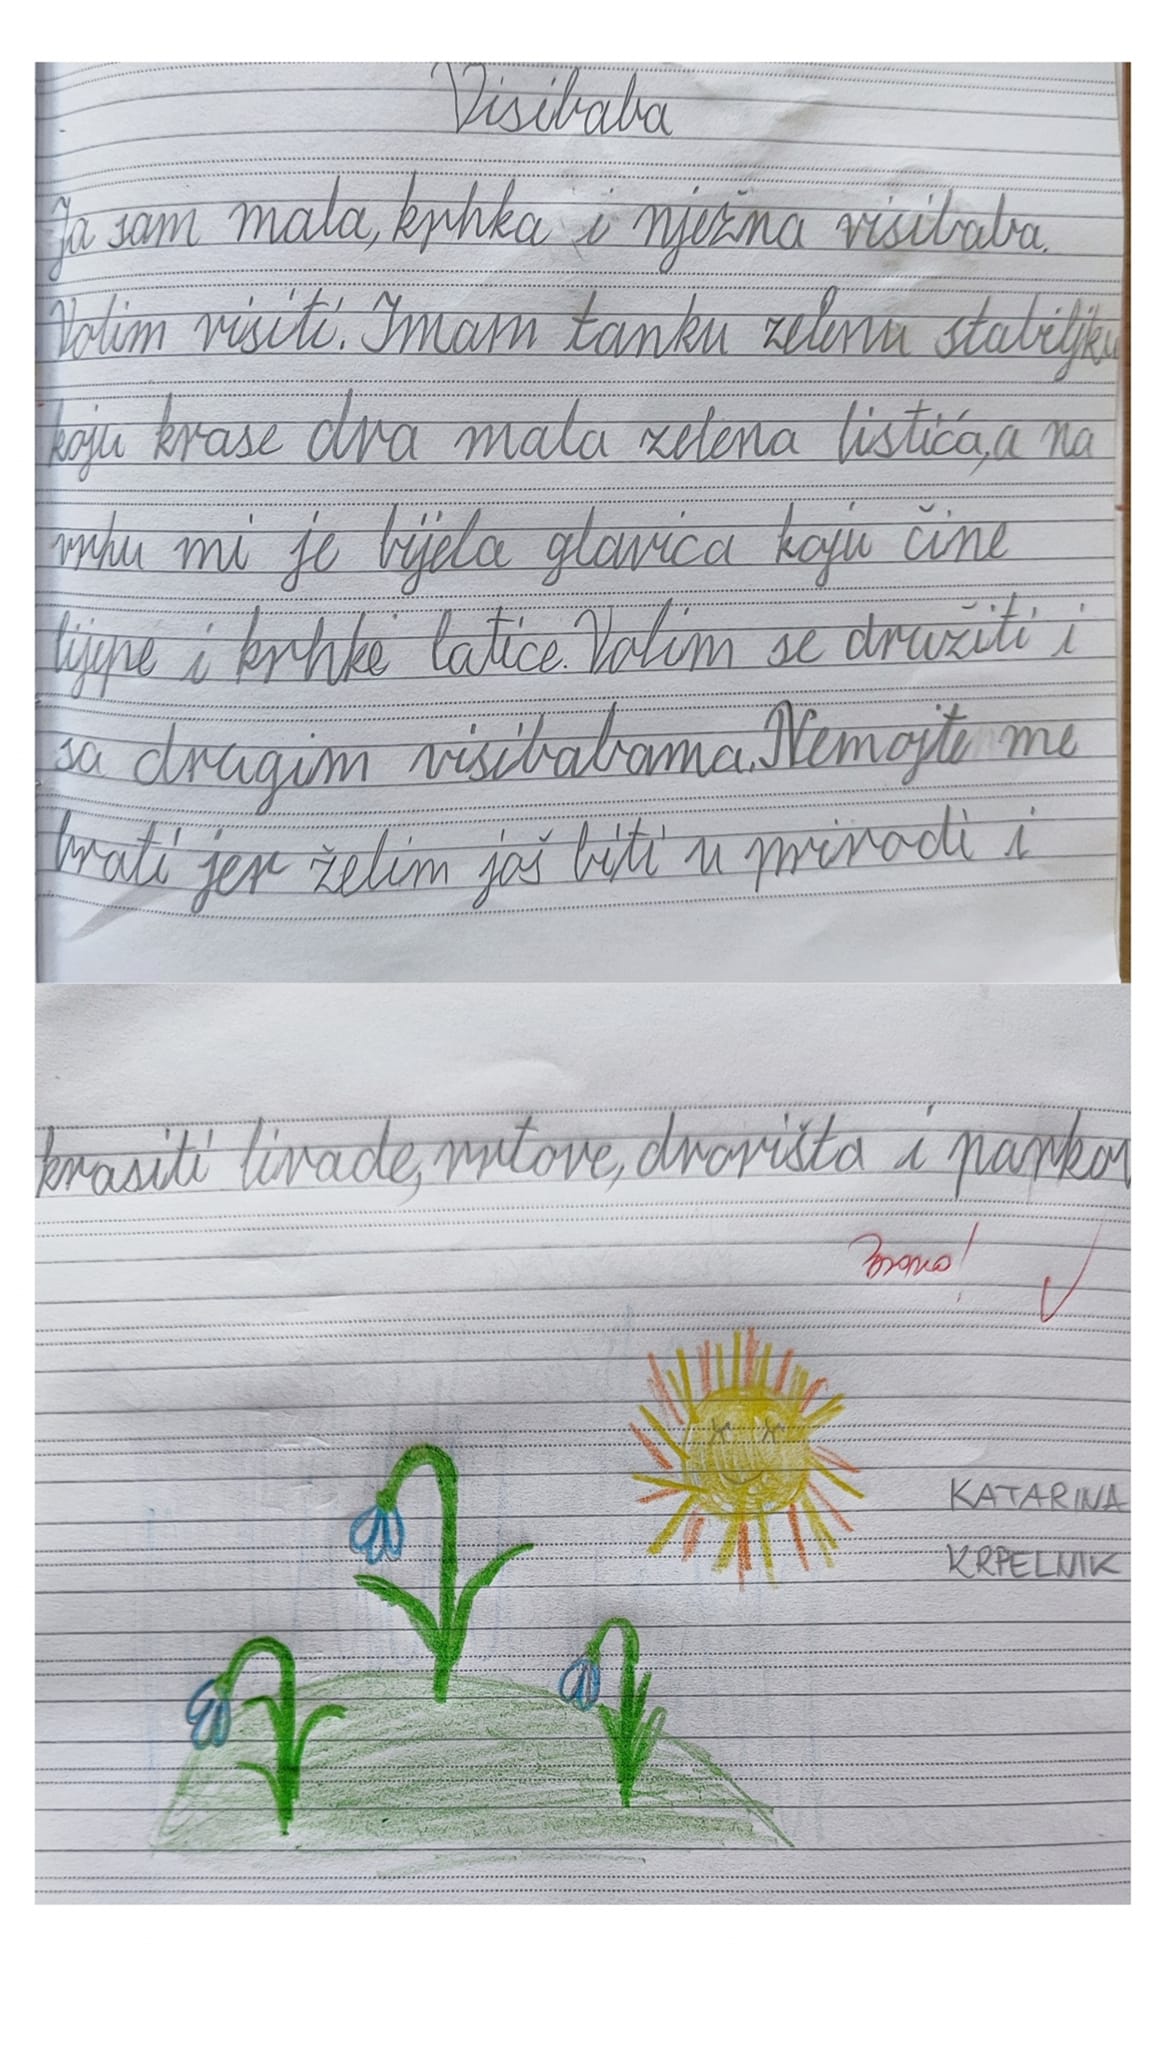 Visibaba
Ja sam mala, krhka i nježna visibaba.
Volim visiti. Imam tanku zelenu stabiljku
koju krase dva mala zelena listića, a na
vrhu mi je bijela glavica koju čine
lijepe i krhke latice. Volim se družiti i
sa drugim visibabama. Nemojte me
brati jer želim još biti u prirodi i
krasiti livade, vrtove, dvorišta i parkov
Bravo!
KATARINA
KRPELNIK